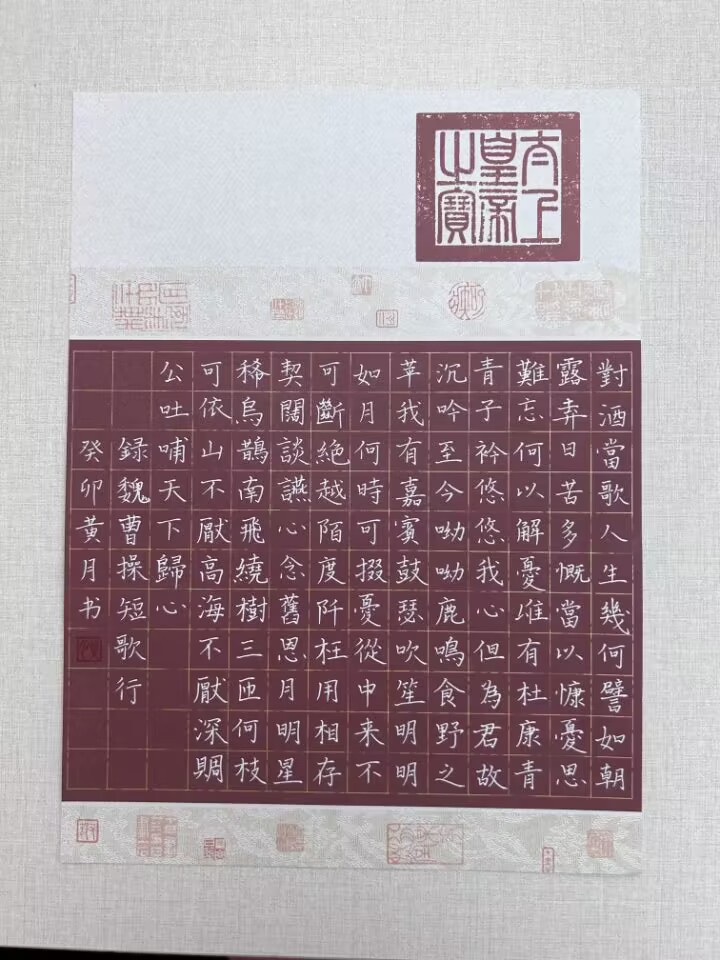 太上
皇帝
之寶
對酒當歌人生幾何譬如朝
露弃日苦多慨當以慷憂思
難忘何以解憂唯有杜康青
青子衿悠悠我心但為君故
沉吟至今呦呦鹿鳴食野之
苹我有嘉賓鼓瑟吹笙明明
如月何時可掇憂從中来不
可斷絕越陌度阡枉用相存
契闊談讌心念舊恩月明星
稀烏鵲南飛繞樹三匝何枝
可依山不厭高海不厭深賙
公吐哺天下歸心
録魏曹操短歌行
癸卯黃月书